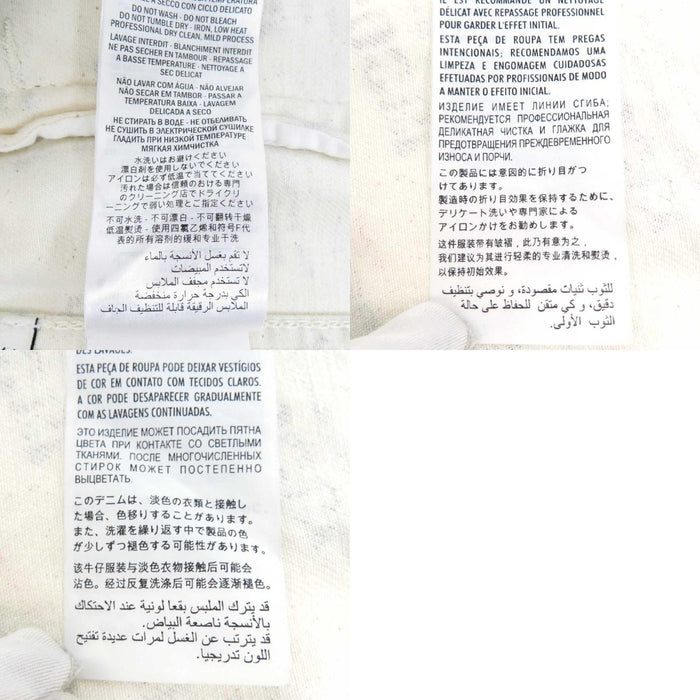 A SECCO CON CICLO DELICATO
DO NOT WASH - DO NOT BLEACH
DO NOT TUMBLE DRY - IRON, LOW HEAT
PROFESSIONAL DRY CLEAN, MILD PROCESS
LAVAGE INTERDIT - BLANCHIMENT INTERDIT
PAS DE SECHER EN TAMBOUR - REPASSAGE
A BASSE TEMPERATURE - NETTOYAGE A
SEC DELICAT
NÃO LAVAR COM ÁGUA - NÃO ALVEJAR
NÃO SECAR EM TAMBOR - PASSAR A
TEMPERATURA BAIXA - LAVAGEM
DELICADA A SECO
НЕ СТИРАТЬ В ВОДЕ - НЕ ОТБЕЛИВАТЬ
НЕ СУШИТЬ В ЭЛЕКТРИЧЕСКОЙ СУШИЛКЕ
ГЛАДИТЬ ПРИ НИЗКОЙ ТЕМПЕРАТУРЕ
МЯГКАЯ ХИМЧИСТКА
水洗いはお避けください
漂白剤を使用しないでください
アイロンは必ず低温で当ててください
汚れた場合は信頼のおける専門
のクリーニング店でドライクリ
ーニングで弱い処理とご指定ください
不可水洗 - 不可漂白 - 不可翻转干燥
低温熨烫 - 使用四氯乙烯和符号F代
表的所有溶剂的缓和专业干洗
لا تقم بغسل الأنسجة بالماء
لاتستخدم المبيضات
لاتستخدم مجفف الملابس
الكي بدرجة حرارة منخفضة
الملابس الرقيقة قابلة للتنظيف الجاف
IL EST RECOMMANDÉ UN NETTOYAGE
DÉLICAT AVEC REPASSAGE PROFESSIONNEL
POUR GARDER L'EFFET INITIAL.
ESTA PEÇA DE ROUPA TEM PREGAS
INTENCIONAIS; RECOMENDAMOS UMA
LIMPEZA E ENGOMAGEM CUIDADOSAS
EFETUADAS POR PROFISSIONAIS DE MODO
A MANTER O EFEITO INICIAL.
ИЗДЕЛИЕ ИМЕЕТ ЛИНИИ СГИБА;
РЕКОМЕНДУЕТСЯ ПРОФЕССИОНАЛЬНАЯ
ДЕЛИКАТНАЯ ЧИСТКА И ГЛАЖКА ДЛЯ
ПРЕДОТВРАЩЕНИЯ ПРЕЖДЕВРЕМЕННОГО
ИЗНОСА И ПОРЧИ.
この製品には意図的に折り目がつ
けてあります。
製造時の折り目効果を保持するために、
デリケート洗いや専門家による
アイロンかけをお勧めします。
这件服装带有皱褶，此乃有意为之，
我们建议为其进行轻柔的专业清洗和熨烫，
以保持初始效果。
للثوب ثنيات مقصودة، و نوصي بتنظيف
دقيق، و كي متقن للحفاظ على حالة
الثوب الأولى.
DES LAVAGES.
ESTA PEÇA DE ROUPA PODE DEIXAR VESTÍGIOS
DE COR EM CONTATO COM TECIDOS CLAROS.
A COR PODE DESAPARECER GRADUALMENTE
COM AS LAVAGENS CONTINUADAS.
ЭТО ИЗДЕЛИЕ МОЖЕТ ПОСАДИТЬ ПЯТНА
ЦВЕТА ПРИ КОНТАКТЕ СО СВЕТЛЫМИ
ТКАНЯМИ. ПОСЛЕ МНОГОЧИСЛЕННЫХ
СТИРОК МОЖЕТ ПОСТЕПЕННО
ВЫЦВЕТАТЬ.
このデニムは、淡色の衣類と接触し
た場合、色移りすることがあります。
また、洗濯を繰り返す中で製品の色
が少しずつ褪色する可能性があります。
该牛仔服装与淡色衣物接触后可能会
沾色。经过反复洗涤后可能会逐渐褪色。
قد يترك الملبس بقعا لونية عند الاحتكاك
بالأنسجة ناصعة البياض.
قد يترتب عن الغسل لمرات عديدة تفتيح
اللون تدريجيا.